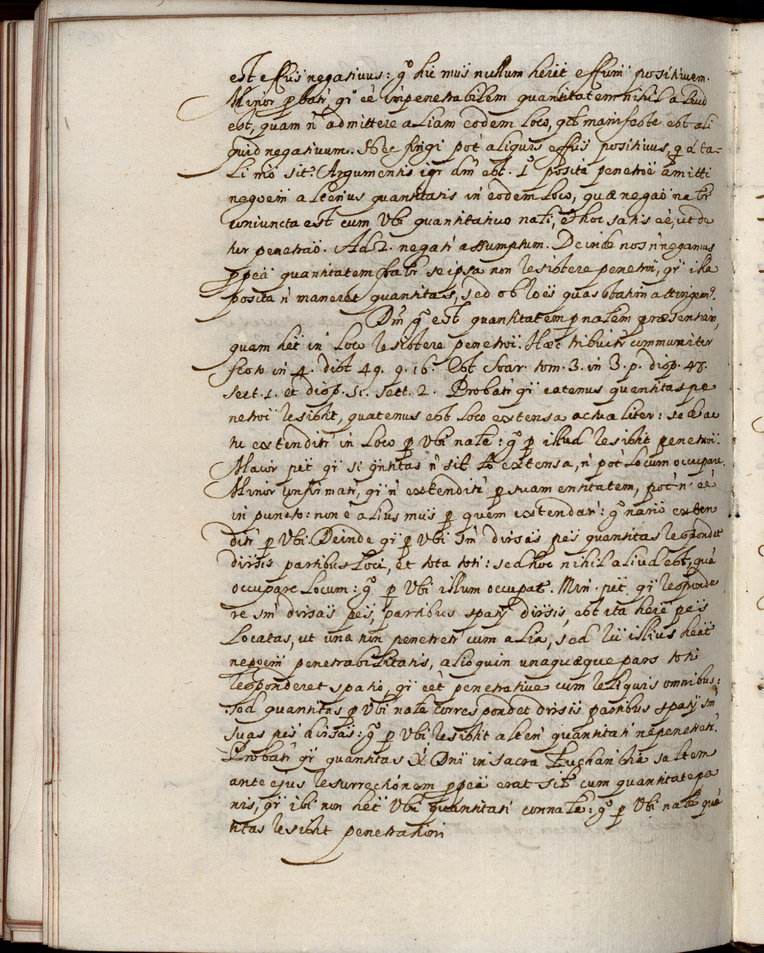 est effūs negatiuus: gͦ hic mus nullum heret effum positiuum.
Minor pbatr, qr eē impenetrabilem quantitatem nihil aliud
est, quam ñ admittere aliam eodem loco, qd manifeste est ali
quid negatiuum. Nec fingi pot aliquis effūs positiuus, q a ta-
li mō sit? Argumentis igr dm est. 1º posita penetrē amitti
negoem alterius quantitatis in eodem loco, quæ negaō natr
coniuncta est cum Vbi quantitatiuo nali, et hoc satis eē, ut de
tur penetraō. Ad 2. negatr assumptum. Deinde nos ñ negamus
ppeā quantitatem statr se ipsa non resistere penetroī, qr illa
posita ñ maneret quantitas, sed ob roēs quas statim attingem9.
Dm gͦ est quantitatem p nalem præsentiam,
quam het in loco resistere penetroi. Hæc tribuitr communiter
Scoto in 4. dist 49. q. 16. Est Soar. tom. 3. in 3. p. disp. 48.
sect. 1. et disp. 51. sect. 2. Probatr qr eatenus quantitas pe
netroi resistit, quatenus est loco extensa actualiter: sed ac
tu extenditr in loco p Vbi nale: gͦ p illud resistit penetroi.
Maior pet qr si qntitas ñ sit extensa, ñ pot locum occupare.
Minor confirmatr, qr ñ extenditr p suam entitatem, pot ñ eē
in puncto: non ē alius mus p quem extendatr: gͦ nario exten
ditr p Vbi. Deinde qr p Vbi sm diursas pes quantitas respondet
diursis partibus loci, et tota toti: sed hoc nihil aliud est, quā
occupare locum: gͦ p Vbi illum occupat. Min. pet qr responde
re sm diursas pes, partibus spatij diursis, est ita here pes
locatas, ut una non penetretr cum alia, sed loci illius heat
negoem penetrabilitatis, alioquin unaquæque pars toti
responderet spatio, qr eēt penetratiue cum reliquis omnibus:
sed quantitas p Vbi nale correspondet diursis partibus spatij sm
suas pes diursas: gͦ p Vbi resistit alteri quantitati ne penetretr.
Probatr qr quantitas Xi Dni in sacra Eucharistia saltem
ante ejus resurrectionem ppeā erat sil cum quantitate pa
nis, qr ibi non het Vbi quantitati connale: gͦ p Vbi nale quā
titas resistit penetrationi